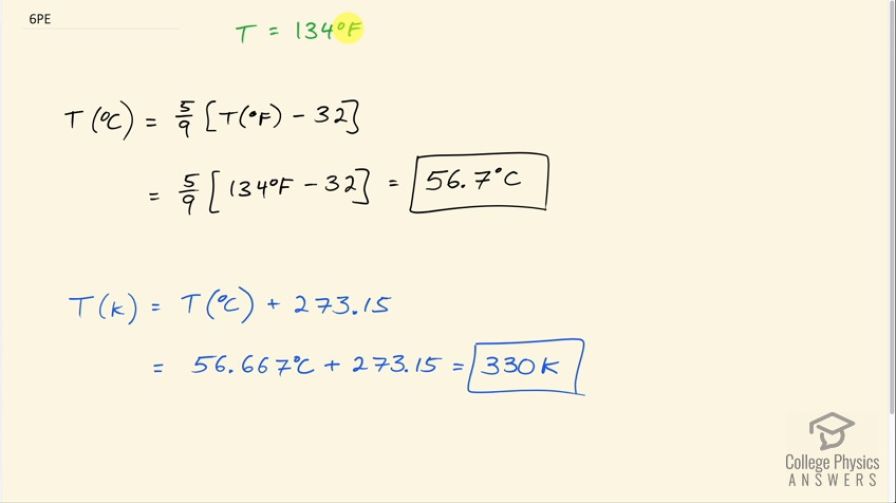 6PE
T = 134°F
T(°C) = 5/9 [T(°F) - 32]
= 5/9 [134°F - 32] = 56.7°C
T(K) = T(°C) + 273.15
= 56.667°C + 273.15 = 330K
College Physics
ANSWERS